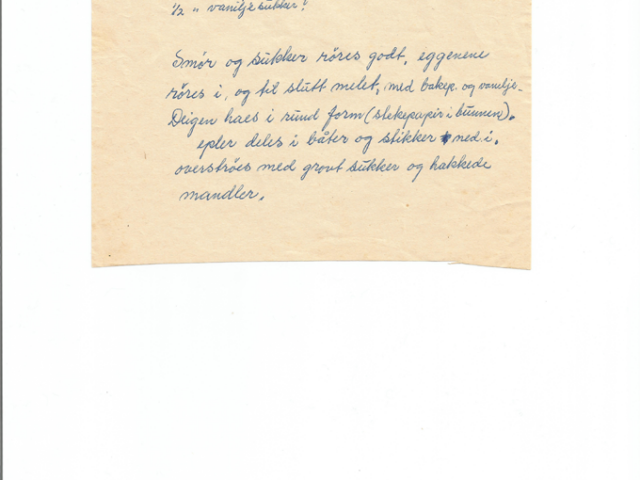 1/2 " vaniljesukker!
Smör og sukker röres godt, eggenene
röres i, og til slutt melet, med bakep. og vanilje.
Deigen haes i rund form (stekepapir i bunnen).
epler deles i båter og stikker ned i.
overströes med grovt sukker og hakkede
mandler.